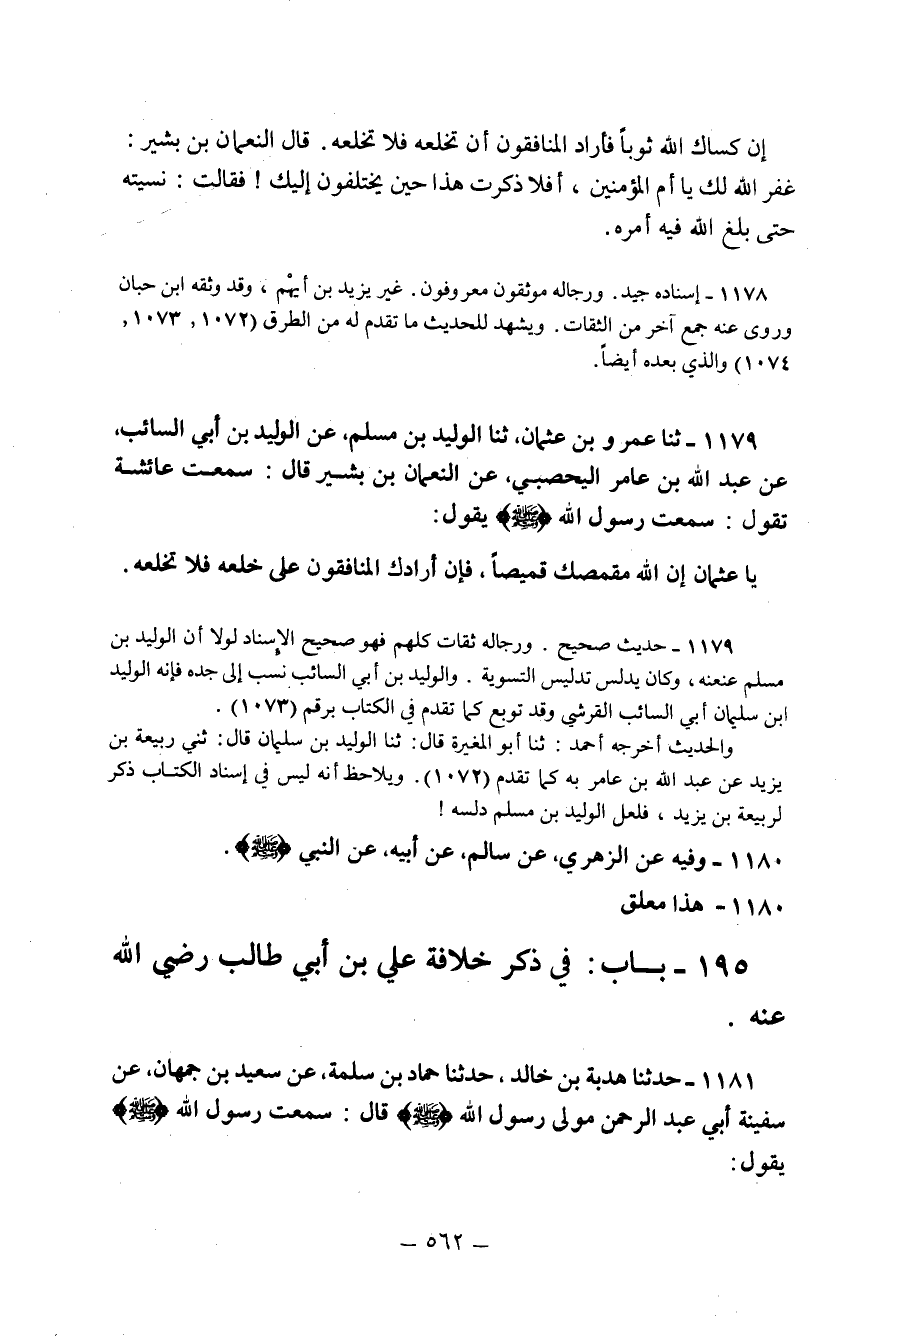 إن كساك الله ثوباً فأراد المنافقون أن تخلعه فلا تخلعه. قال النعمان بن بشير :
غفر الله لك يا أم المؤمنين ، أفلا ذكرت هذا حين يختلفون إليك ! فقالت : نسيته
حتى بلغ الله فيه أمره.
١١٧٨ - إسناده جيد. ورجاله موثقون معروفون. غير يزيد بن أيهْم ، وقد وثقه ابن حبان
وروى عنه جمع آخر من الثقات. ويشهد للحديث ما تقدم له من الطرق (١٠٧٢, ١٠٧٣,
١٠٧٤) والذي بعده أيضاً.
١١٧٩ - ثنا عمرو بن عثمان، ثنا الوليد بن مسلم، عن الوليد بن أبي السائب،
عن عبد الله بن عامر اليحصبي، عن النعمان بن بشير قال : سمعت عائشة
تقول : سمعت رسول الله ﴿ﷺ﴾ يقول:
يا عثمان إن الله مقمصك قميصاً ، فإن أرادك المنافقون على خلعه فلا تخلعه.
١١٧٩ - حديث صحيح . ورجاله ثقات كلهم فهو صحيح الإسناد لولا أن الوليد بن
مسلم عنعنه ، وكان يدلس تدليس التسوية . والوليد بن أبي السائب نسب إلى جده فإنه الوليد
ابن سليمان أبي السائب القرشي وقد توبع كما تقدم في الكتاب برقم (١٠٧٣) .
والحديث أخرجه أحمد : ثنا أبو المغيرة قال: ثنا الوليد بن سليمان قال: ثني ربيعة بن
يزيد عن عبد الله بن عامر به كما تقدم (١٠٧٢). ويلاحظ أنه ليس في إسناد الكتاب ذكر
لربيعة بن يزيد ، فلعل الوليد بن مسلم دلسه !
١١٨٠ - وفيه عن الزهري، عن سالم، عن أبيه، عن النبي ﴿ﷺ﴾.
١١٨٠ - هذا معلق
١٩٥ - بــاب: في ذكر خلافة علي بن أبي طالب رضي الله
عنه .
١١٨١ - حدثنا هدبة بن خالد ، حدثنا حماد بن سلمة، عن سعيد بن جمهان، عن
سفينة أبي عبد الرحمن مولى رسول الله ﴿ﷺ﴾ قال : سمعت رسول الله ﴿ﷺ﴾
يقول:
— ٥٦٢ —